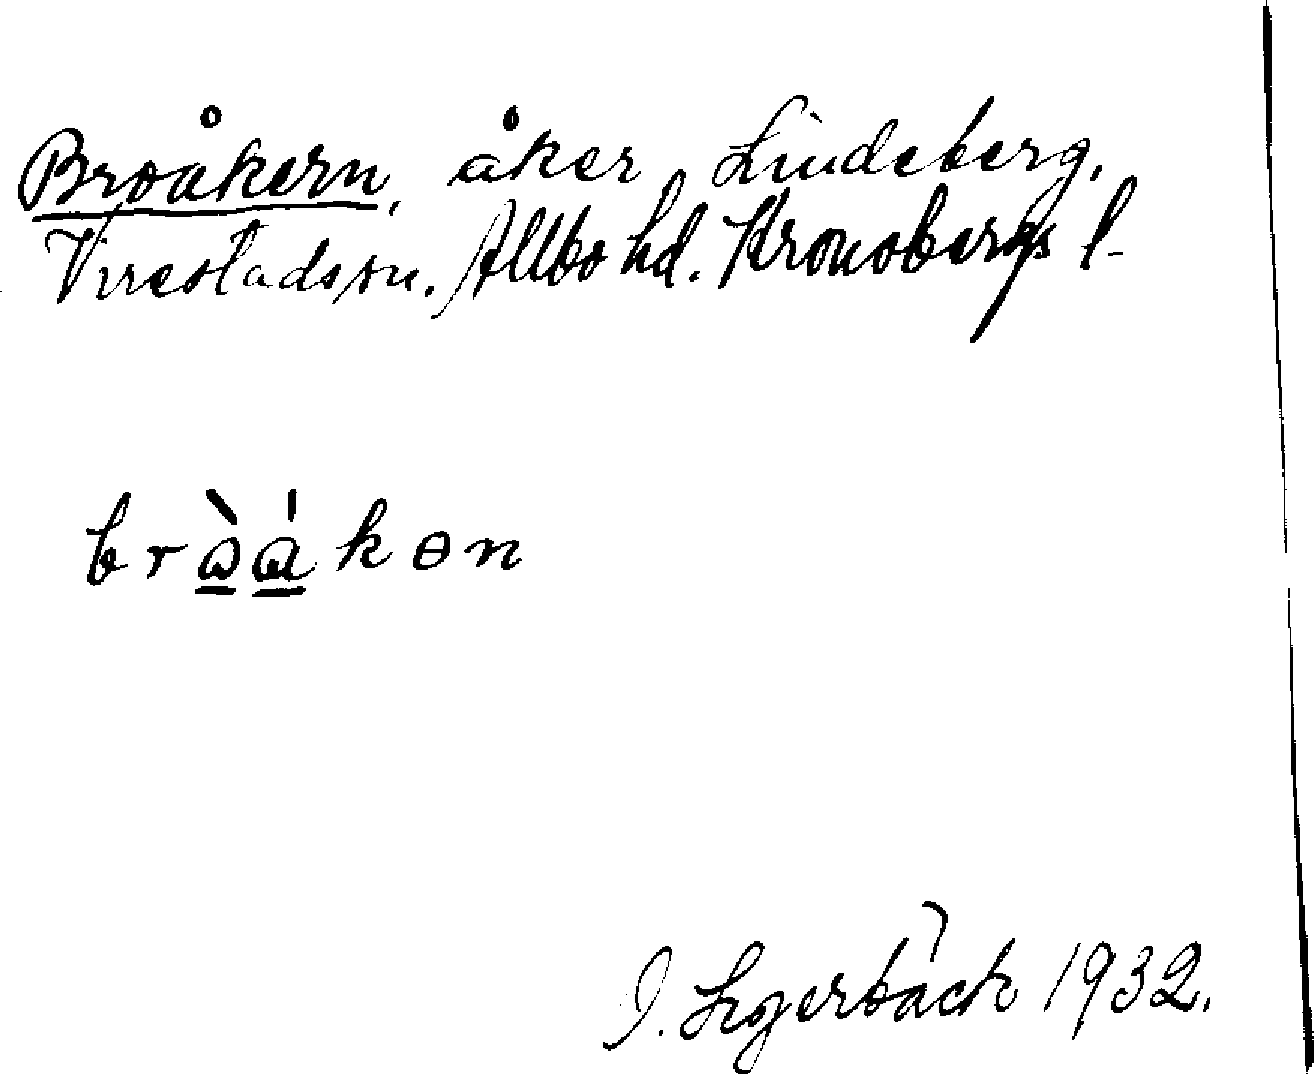 Broåkern, åker Lindeberg,
Virestads sn. Allbo hd. Kronobergs l.
bròákɵn
1932.